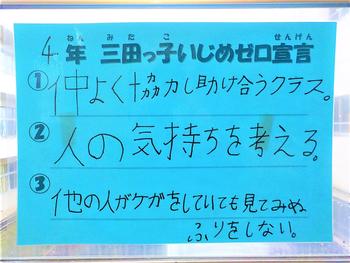 ねん みたこ せんげん
4年 三田っ子いじめゼロ宣言
①仲よく協力し助け合うクラス。
②人の気持ちを考える。
③他の人がケガをしていても見てみぬ
ふりをしない。